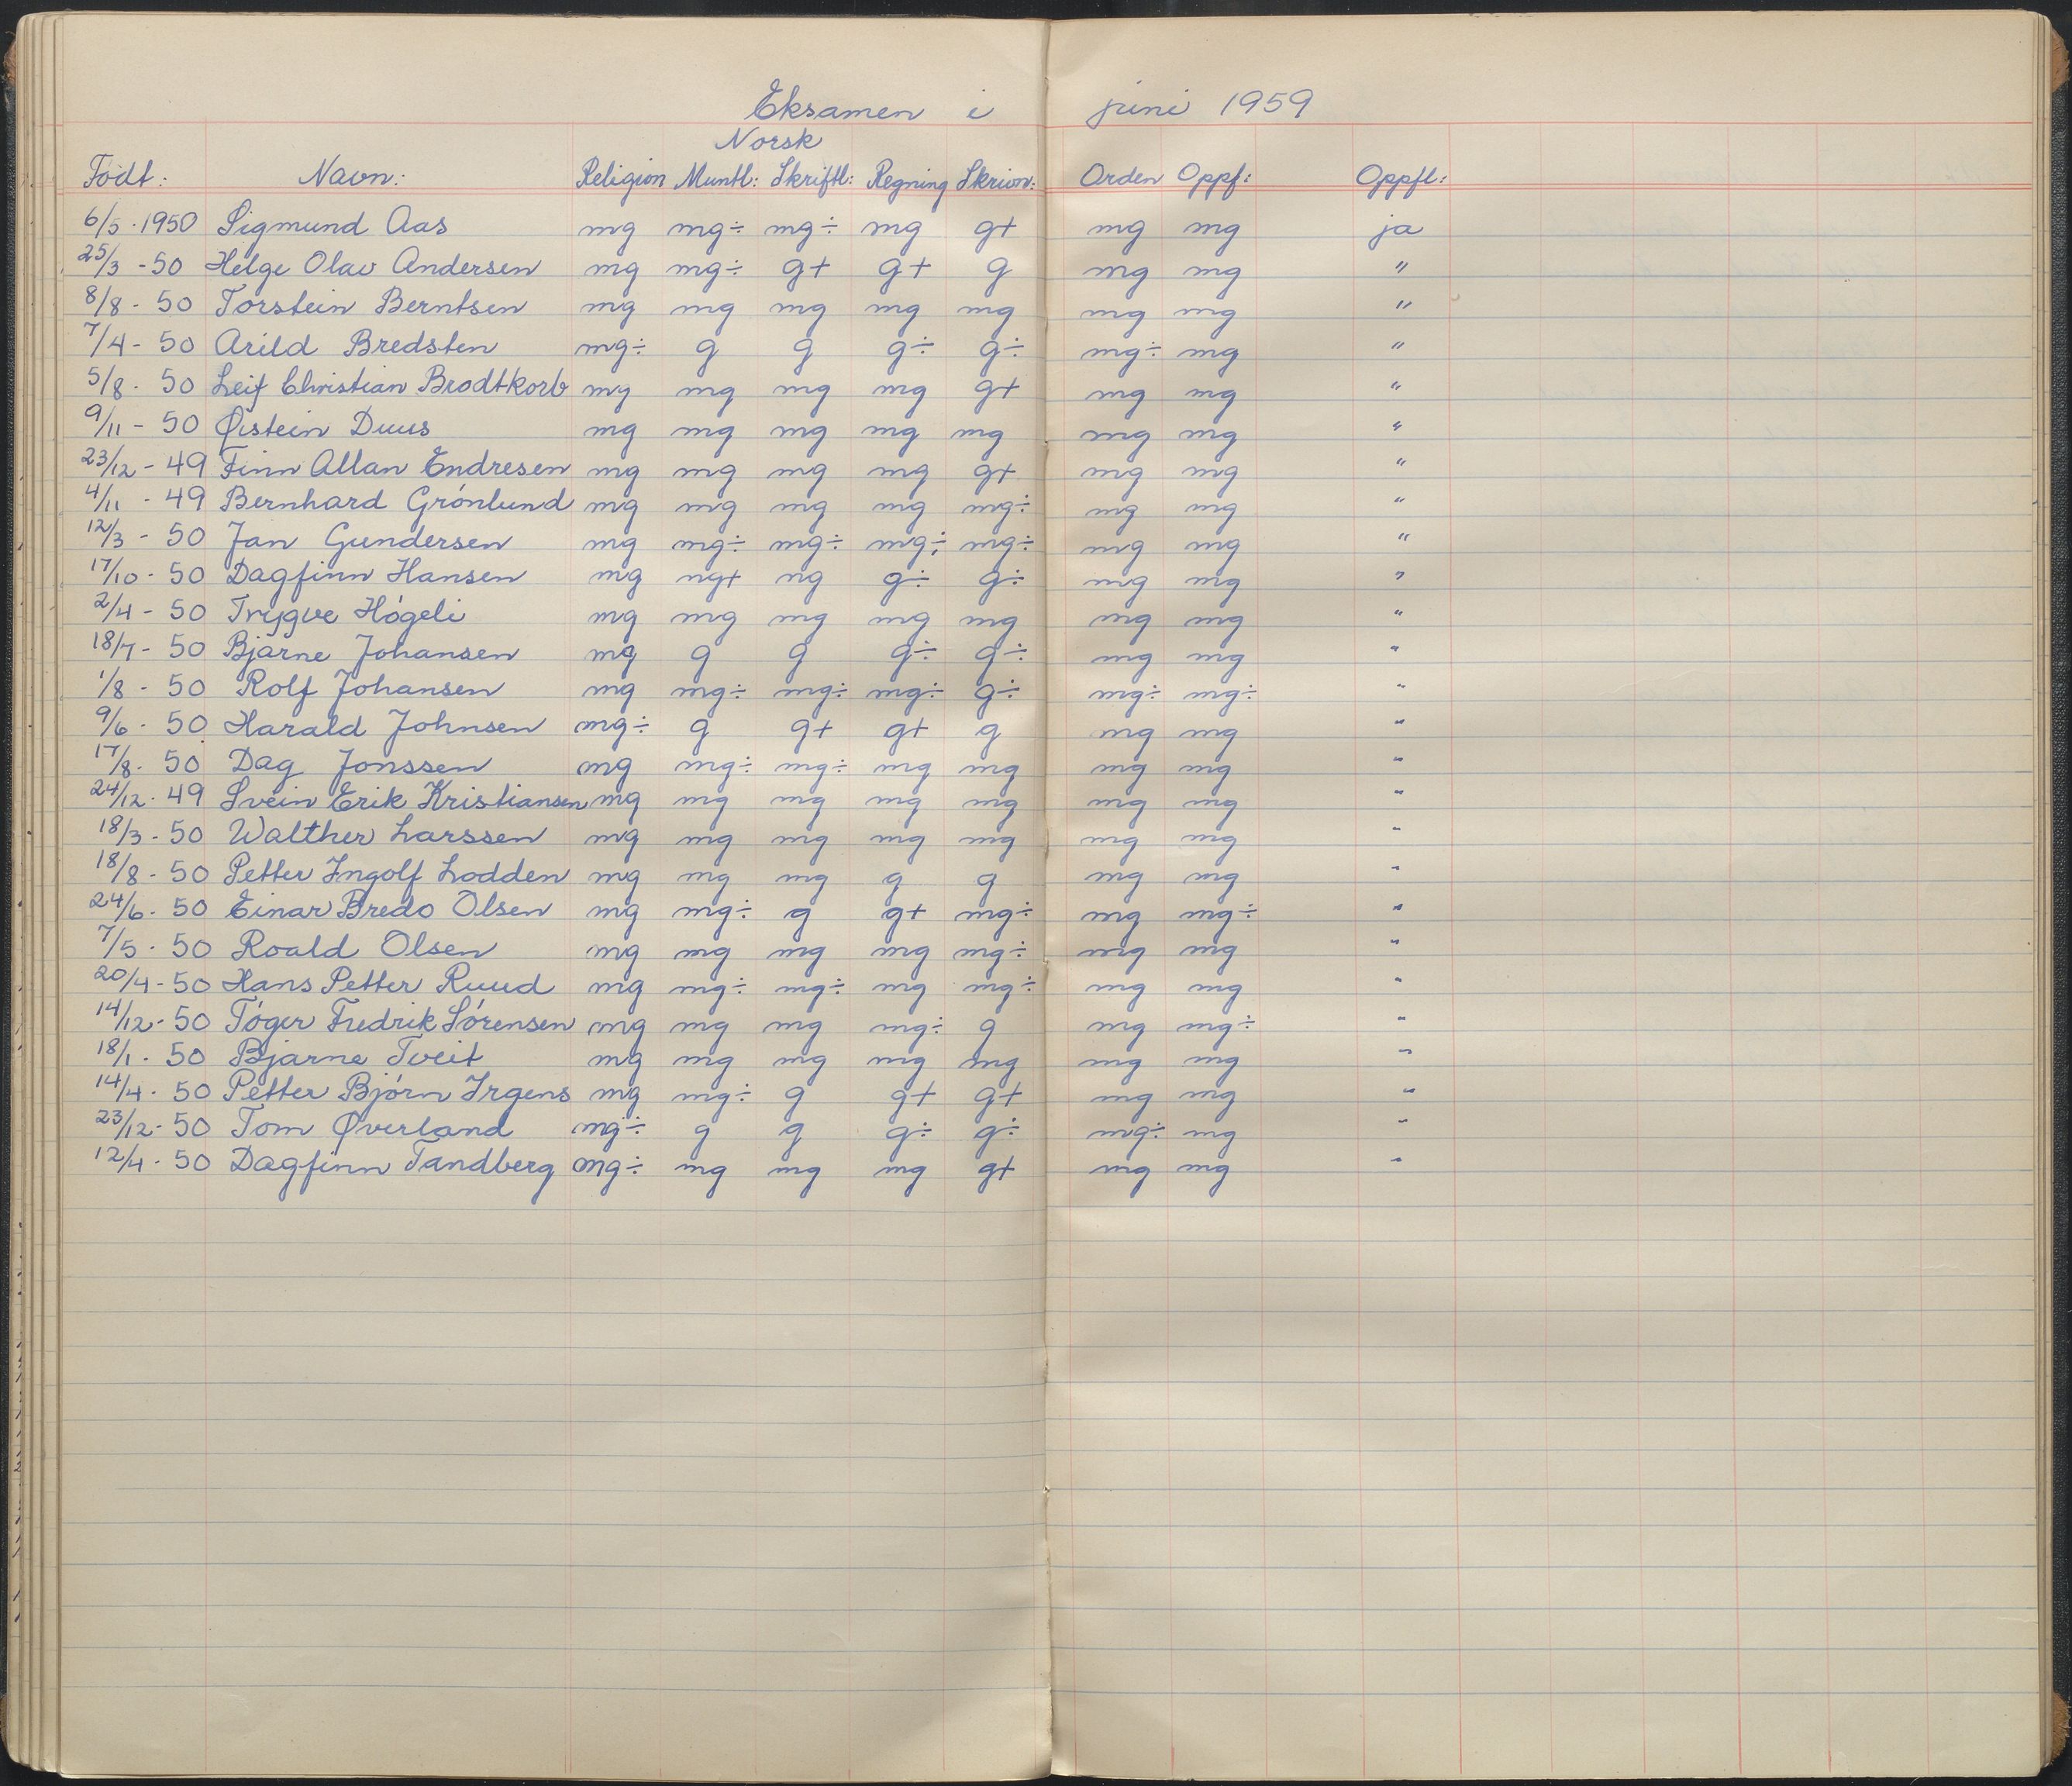 Eksamen i juni 1959
Norsk
Født: Navn: Religion Muntl: Skriftl: Regning Skriv: Orden Oppf: Oppfl:
6/5 - 1950 Sigmund Aas mg mg÷ mg÷ mg g+ mg mg ja
25/3 - 50 Helge Olav Andersen mg mg÷ g+ g+ g mg mg "
8/8 - 50 Torstein Berntsen mg mg mg mg mg mg mg "
7/4 - 50 Arild Bredsten mg÷ g g g÷ g÷ mg÷ mg "
5/8 - 50 Leif Christian Brodtkorb mg mg mg mg g+ mg mg "
9/11 - 50 Øistein Duus mg mg mg mg mg mg mg "
23/12 - 49 Finn Allan Endresen mg mg mg mg g+ mg mg "
4/11 - 49 Bernhard Grónlund mg mg mg mg mg÷ mg mg "
12/3 - 50 Jan Gundersen mg mg÷ mg÷ mg÷ mg÷ mg mg "
17/10 - 50 Dagfinn Hansen mg ng+ ng g÷ g÷ mg mg "
2/4 - 50 Trygve Hógeli mg mg mg mg mg mg mg "
18/7 - 50 Bjarne Johansen mg g g g÷ g÷ mg mg "
1/8 - 50 Rolf Johansen mg mg÷ mg÷ mg÷ g÷ mg÷ mg÷ "
9/6 - 50 Harald Johnsen mg÷ g g+ g+ g mg mg "
17/8 - 50 Dag Jonssen mg mg÷ mg÷ mg mg mg mg "
24/12 - 49 Svein Erik Kristiansen mg mg mg mg mg mg mg "
18/3 - 50 Walther Larssen mg mg mg mg mg mg mg "
18/8 - 50 Petter Ingolf Lodden mg mg mg g g mg mg "
24/6 - 50 Einar Bredo Olsen mg mg÷ g g+ mg÷ mg mg÷ "
7/5 - 50 Roald Olsen mg mg mg mg mg÷ mg mg "
20/4 - 50 Hans Petter Ruud mg mg÷ mg÷ mg mg÷ mg mg "
14/12 - 50 Tóger Fredrik Sórensen mg mg mg mg÷ g mg mg÷ "
18/1 - 50 Bjarne Tveit mg mg mg mg mg mg mg "
14/4 - 50 Petter Bjórn Irgens mg mg÷ g g+ g+ mg mg "
23/12 - 50 Tom Øverland mg÷ g g g÷ g÷ mg÷ mg "
12/4 - 50 Dagfinn Tandberg mg÷ mg mg mg g+ mg mg "